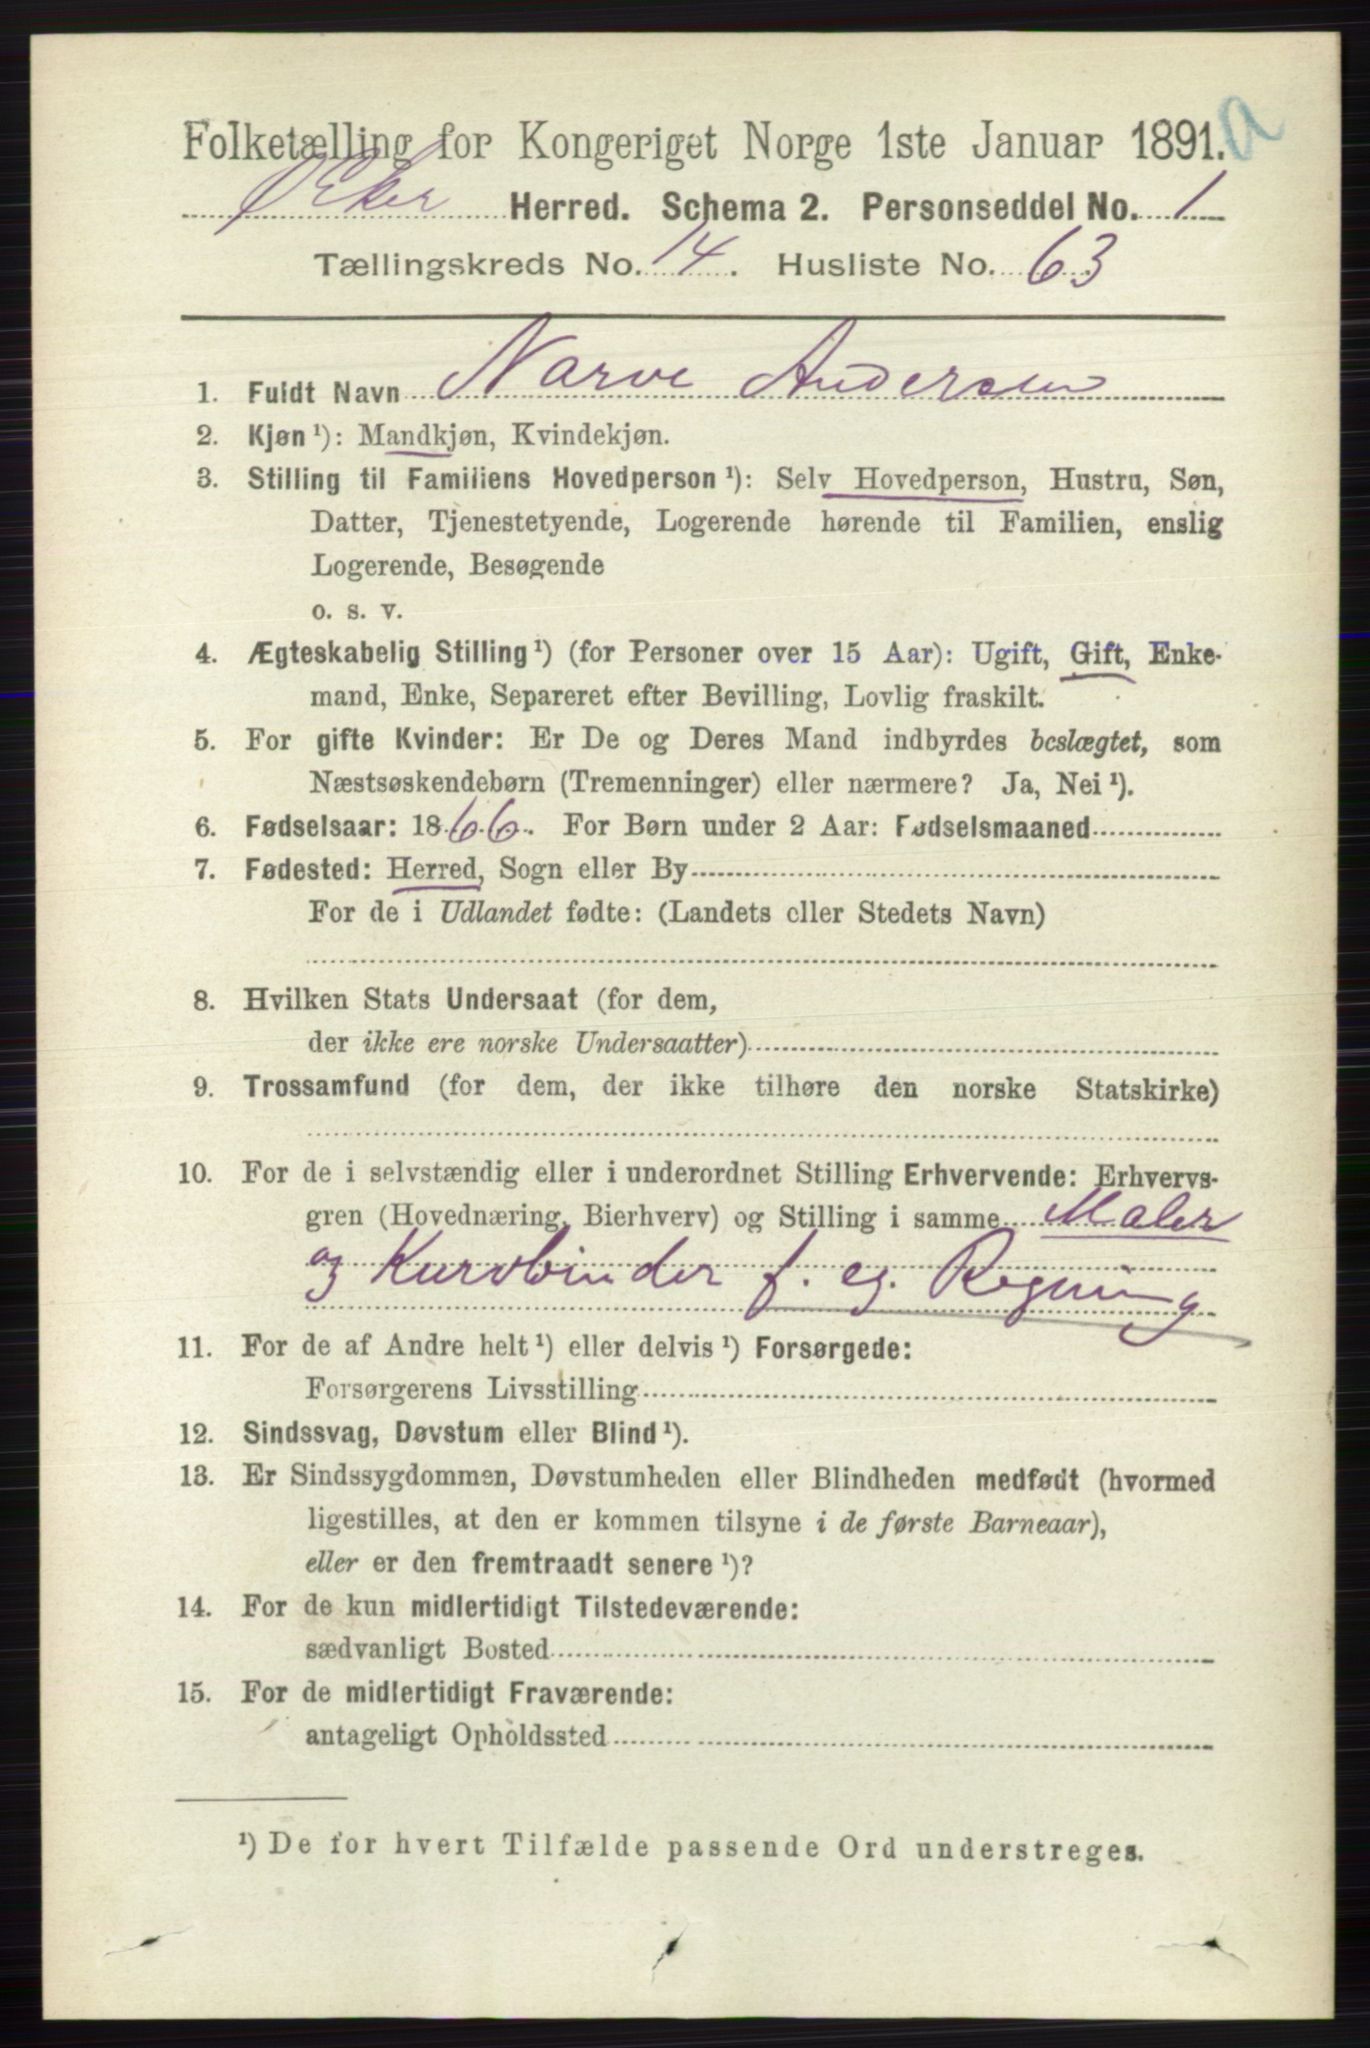 Folketælling for Kongeriget Norge 1ste Januar 1891. a
Ø Eker Herred. Schema 2. Personseddel No. 1
Tællingskreds No. 14. Husliste No. 63
1. Fuldt Navn Narve Andersen
2. Kjøn ¹): Mandkjøn, Kvindekjøn.
3. Stilling til Familiens Hovedperson ¹): Selv Hovedperson, Hustru, Søn,
Datter, Tjenestetyende, Logerende hørende til Familien, enslig
Logerende, Besøgende
o. s. v.
4. Ægteskabelig Stilling ¹) (for Personer over 15 Aar): Ugift, Gift, Enke-
mand, Enke, Separeret efter Bevilling, Lovlig fraskilt.
5. For gifte Kvinder: Er De og Deres Mand indbyrdes beslægtet, som
Næstsøskendebørn (Tremenninger) eller nærmere? Ja, Nei ¹).
6. Fødselsaar: 1866. For Børn under 2 Aar: Fødselsmaaned
7. Fødested: Herred, Sogn eller By
For de i Udlandet fødte: (Landets eller Stedets Navn)
8. Hvilken Stats Undersaat (for dem,
der ikke ere norske Undersaatter)
9. Trossamfund (for dem, der ikke tilhøre den norske Statskirke)
10. For de i selvstændig eller i underordnet Stilling Erhvervende: Erhvervs-
gren (Hovednæring, Bierhverv) og Stilling i samme Maler
og Kurvbinder f. eg. Regning
11. For de af Andre helt ¹) eller delvis ¹) Forsørgede:
Forsørgerens Livsstilling
12. Sindssvag, Døvstum eller Blind ¹).
13. Er Sindssygdommen, Døvstumheden eller Blindheden medfødt (hvormed
ligestilles, at den er kommen tilsyne i de første Barneaar),
eller er den fremtraadt senere ¹)?
14. For de kun midlertidigt Tilstedeværende:
sædvanligt Bosted
15. For de midlertidigt Fraværende:
antageligt Opholdssted
¹) De for hvert Tilfælde passende Ord understreges.